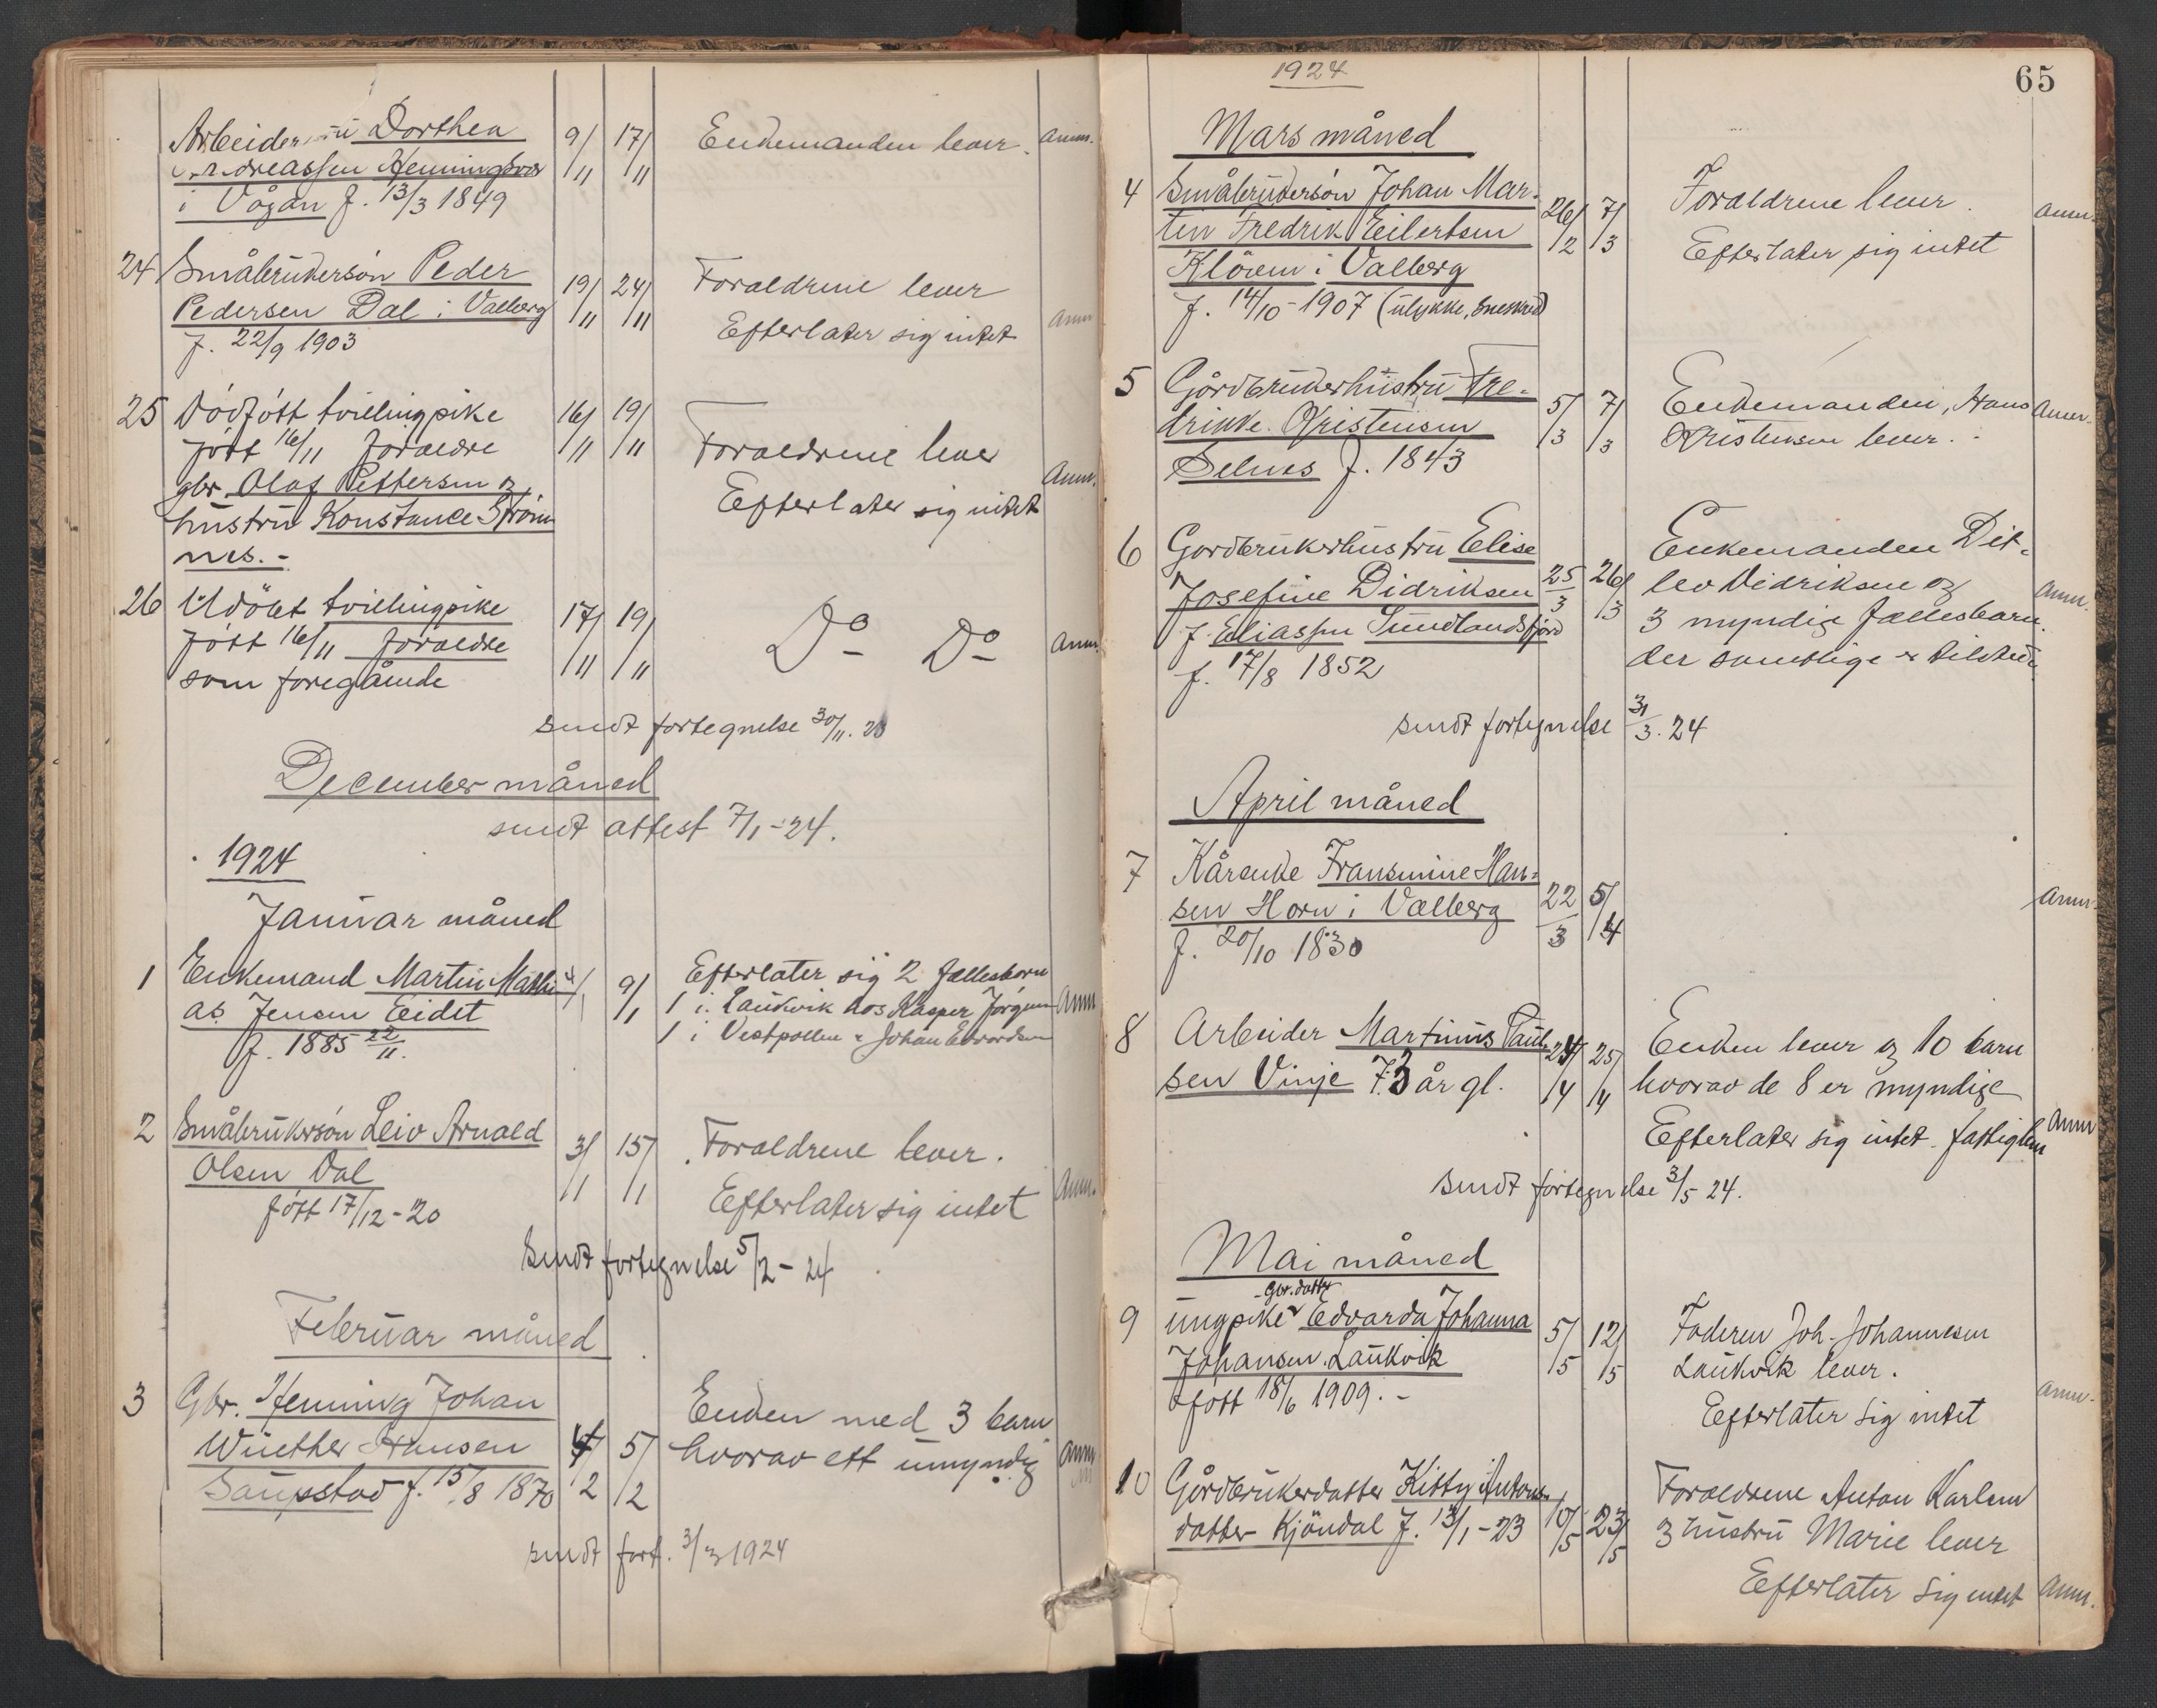 Arbeider Dorthea
Henningsvær
i Vågan f. 13/3 1849
9/11 17/11
Enkemanden lever.
Anm.
24 Småbrukersön Peder
Pedersen Dal i Valberg
f. 22/9 1903
19/11 24/11
Foraldrene lever
Efterlater sig intet
Anm
25 Dödfött tvillingpike
fött 16/11 foraldre
gbr. Olaf Pettersen og
hustru Konstance Ström
nes.-
16/11 19/11
Foraldrene lever
Efterlater sig intet
Anm.
26 Udöbt tvillingpike
fött 16/11 foraldre
som foregående
17/11 19/11
Do Do
Anm.
sendt fortegnelse 30/11. 23
December måned
sendt attest 7/1-24.
1924
Januar måned
1 Enkemand Martin Mathi
as Jensen Eidet
f. 1885 22/11.
4/1 9/1
Efterlater sig 2 fællesbarn
1 i Laukvik hos Kasper Jörgensen
1 i Vestpollen " Johan Edvardsen
Anm
2 Småbrukersön Leiv Arnald
Olsen Dal
fött 17/12-20
3/1 15/1
Foraldrene lever.
Efterlater sig intet
Anm.
Sendt fortegnelse 5/2-24
Februar måned
3 Gbr. Henning Johan
Wüether Hansen
Saupstad f. 15/8 1870
4/2 5/2
Enken med 3 barn
hvorav ett umyndig
Anm
sendt fort. 3/3 1924
1924
65
Mars måned
4 Småbrukersön Johan Mar-
tin Fredrik Eilertsen
Klöven i Valberg
f. 14/10-1907 (ulykke, Sneskred)
26/2 7/3
Foraldrene lever.
Efterlater sig intet
Anm.
5 Gårdbrukerhustru Fre-
drikke Kristensen
Selnes f. 1843
5/3 7/3
Enkemanden, Hans
Kristensen lever.
Anm.
6 Gardbrukerhustru Elise
Josefine Didriksen
f. Eliassen Sundlandsfjord
f. 17/8 1852
25/3 26/3
Enkemanden Dit-
lev Didriksen og
3 myndige fællesbarn.
der samtlige er tilstede
Anm.
sendt fortegnelse 31/3. 24
April måned
7 Kårenke Fransmine Han-
sen Horn i Valberg
f. 20/10 1830
22/3 5/4
Anm.
8 Arbeider Martinus Paul-
sen Vinje 73 år gl.
24/4 25/4
Enken lever og 10 barn
hvorav de 8 er myndige
Efterlater sig intet. fattiglem
Anm
Sendt fortegnelse 3/5 24.
Mai måned
Gbr. datter
9 ungpike Edvarda Johanna
Johansen Laukvik
fött 18/6 1909.-
5/5 12/5
Faderen Joh. Johannesen
Laukvik lever.
Efterlater sig intet
Anm.
10 Gårdbrukerdatter Kitty Antons-
datter Kjöndal f. 13/1-23
10/5 23/5
Foraldrene Anton Karlsen
og hustru Marie lever
Efterlater sig intet
Anm.